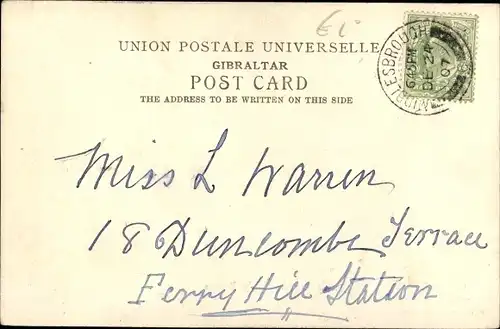 £1
UNION POSTALE UNIVERSELLE
GIBRALTAR
POST CARD
THE ADDRESS TO BE WRITTEN ON THIS SIDE
MIDDLESBROUGH
6.15PM
DE 24
07
Miss L Warren
18 Duncombe Terrace
Ferry Hill Station